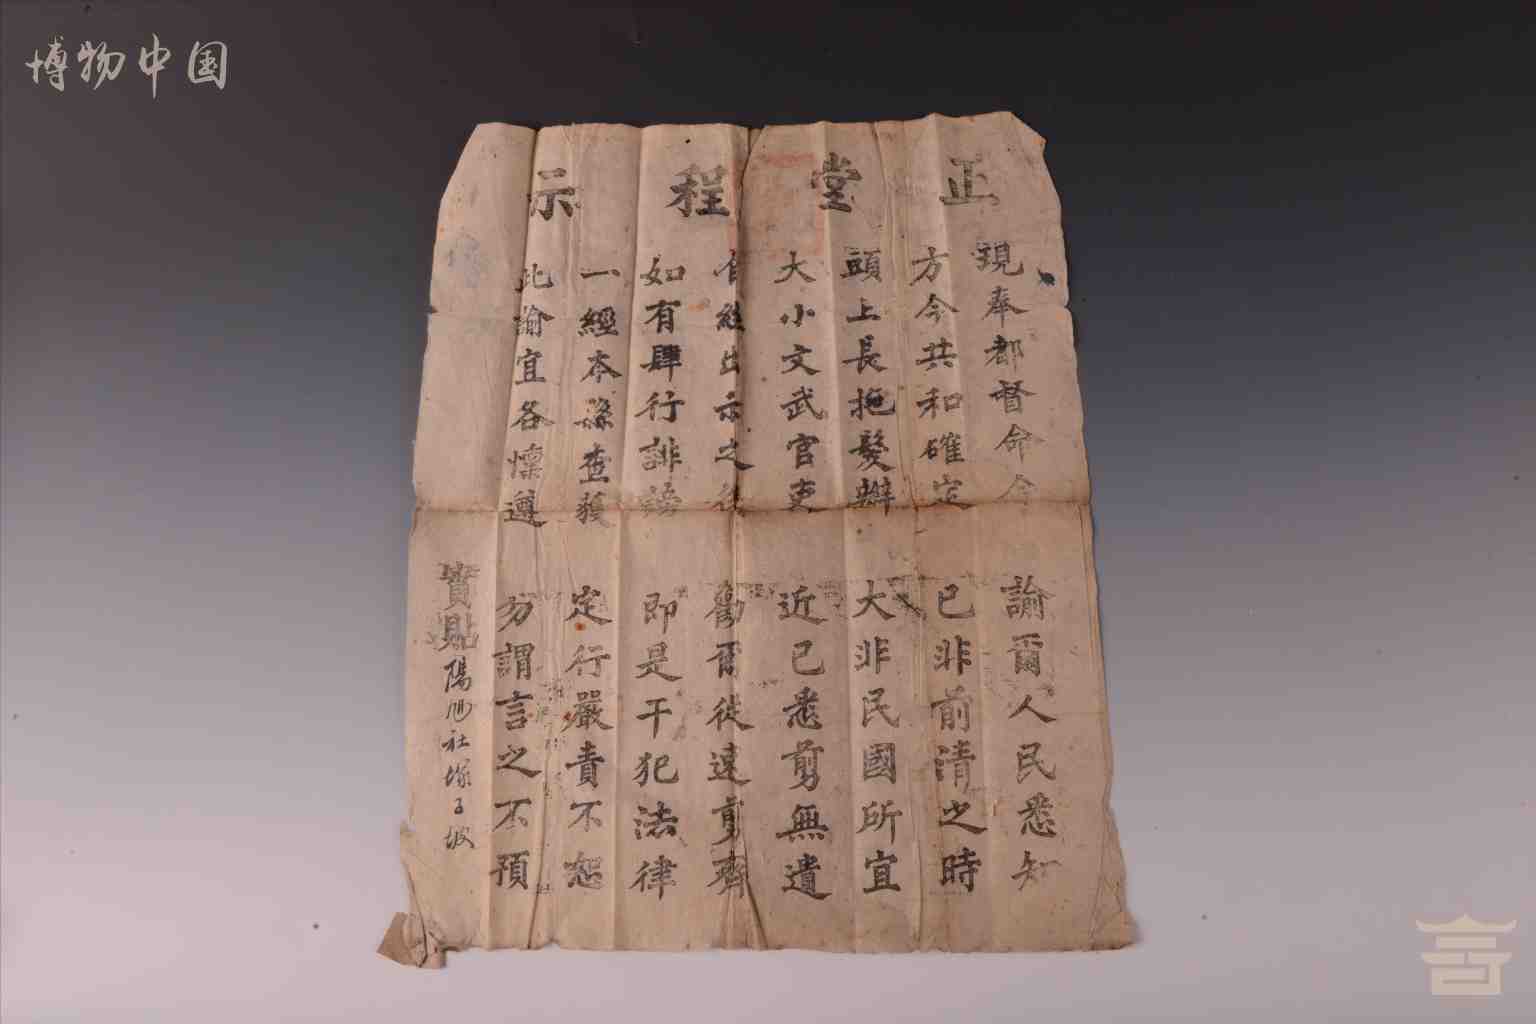 博物中国
正堂程示
現奉都督命令 諭爾人民悉知
方今共和確定 已非前清之時
頭上長拖髮辮 大非民國所宜
大小文武官吏 近已悉剪無遺
自經出示之後 勸爾從速剪齊
如有肆行誹謗 即是干犯法律
一經本縣查獲 定行嚴責不恕
此諭宜各懔遵 勿謂言之不預
實貼陽旭社塚子坡